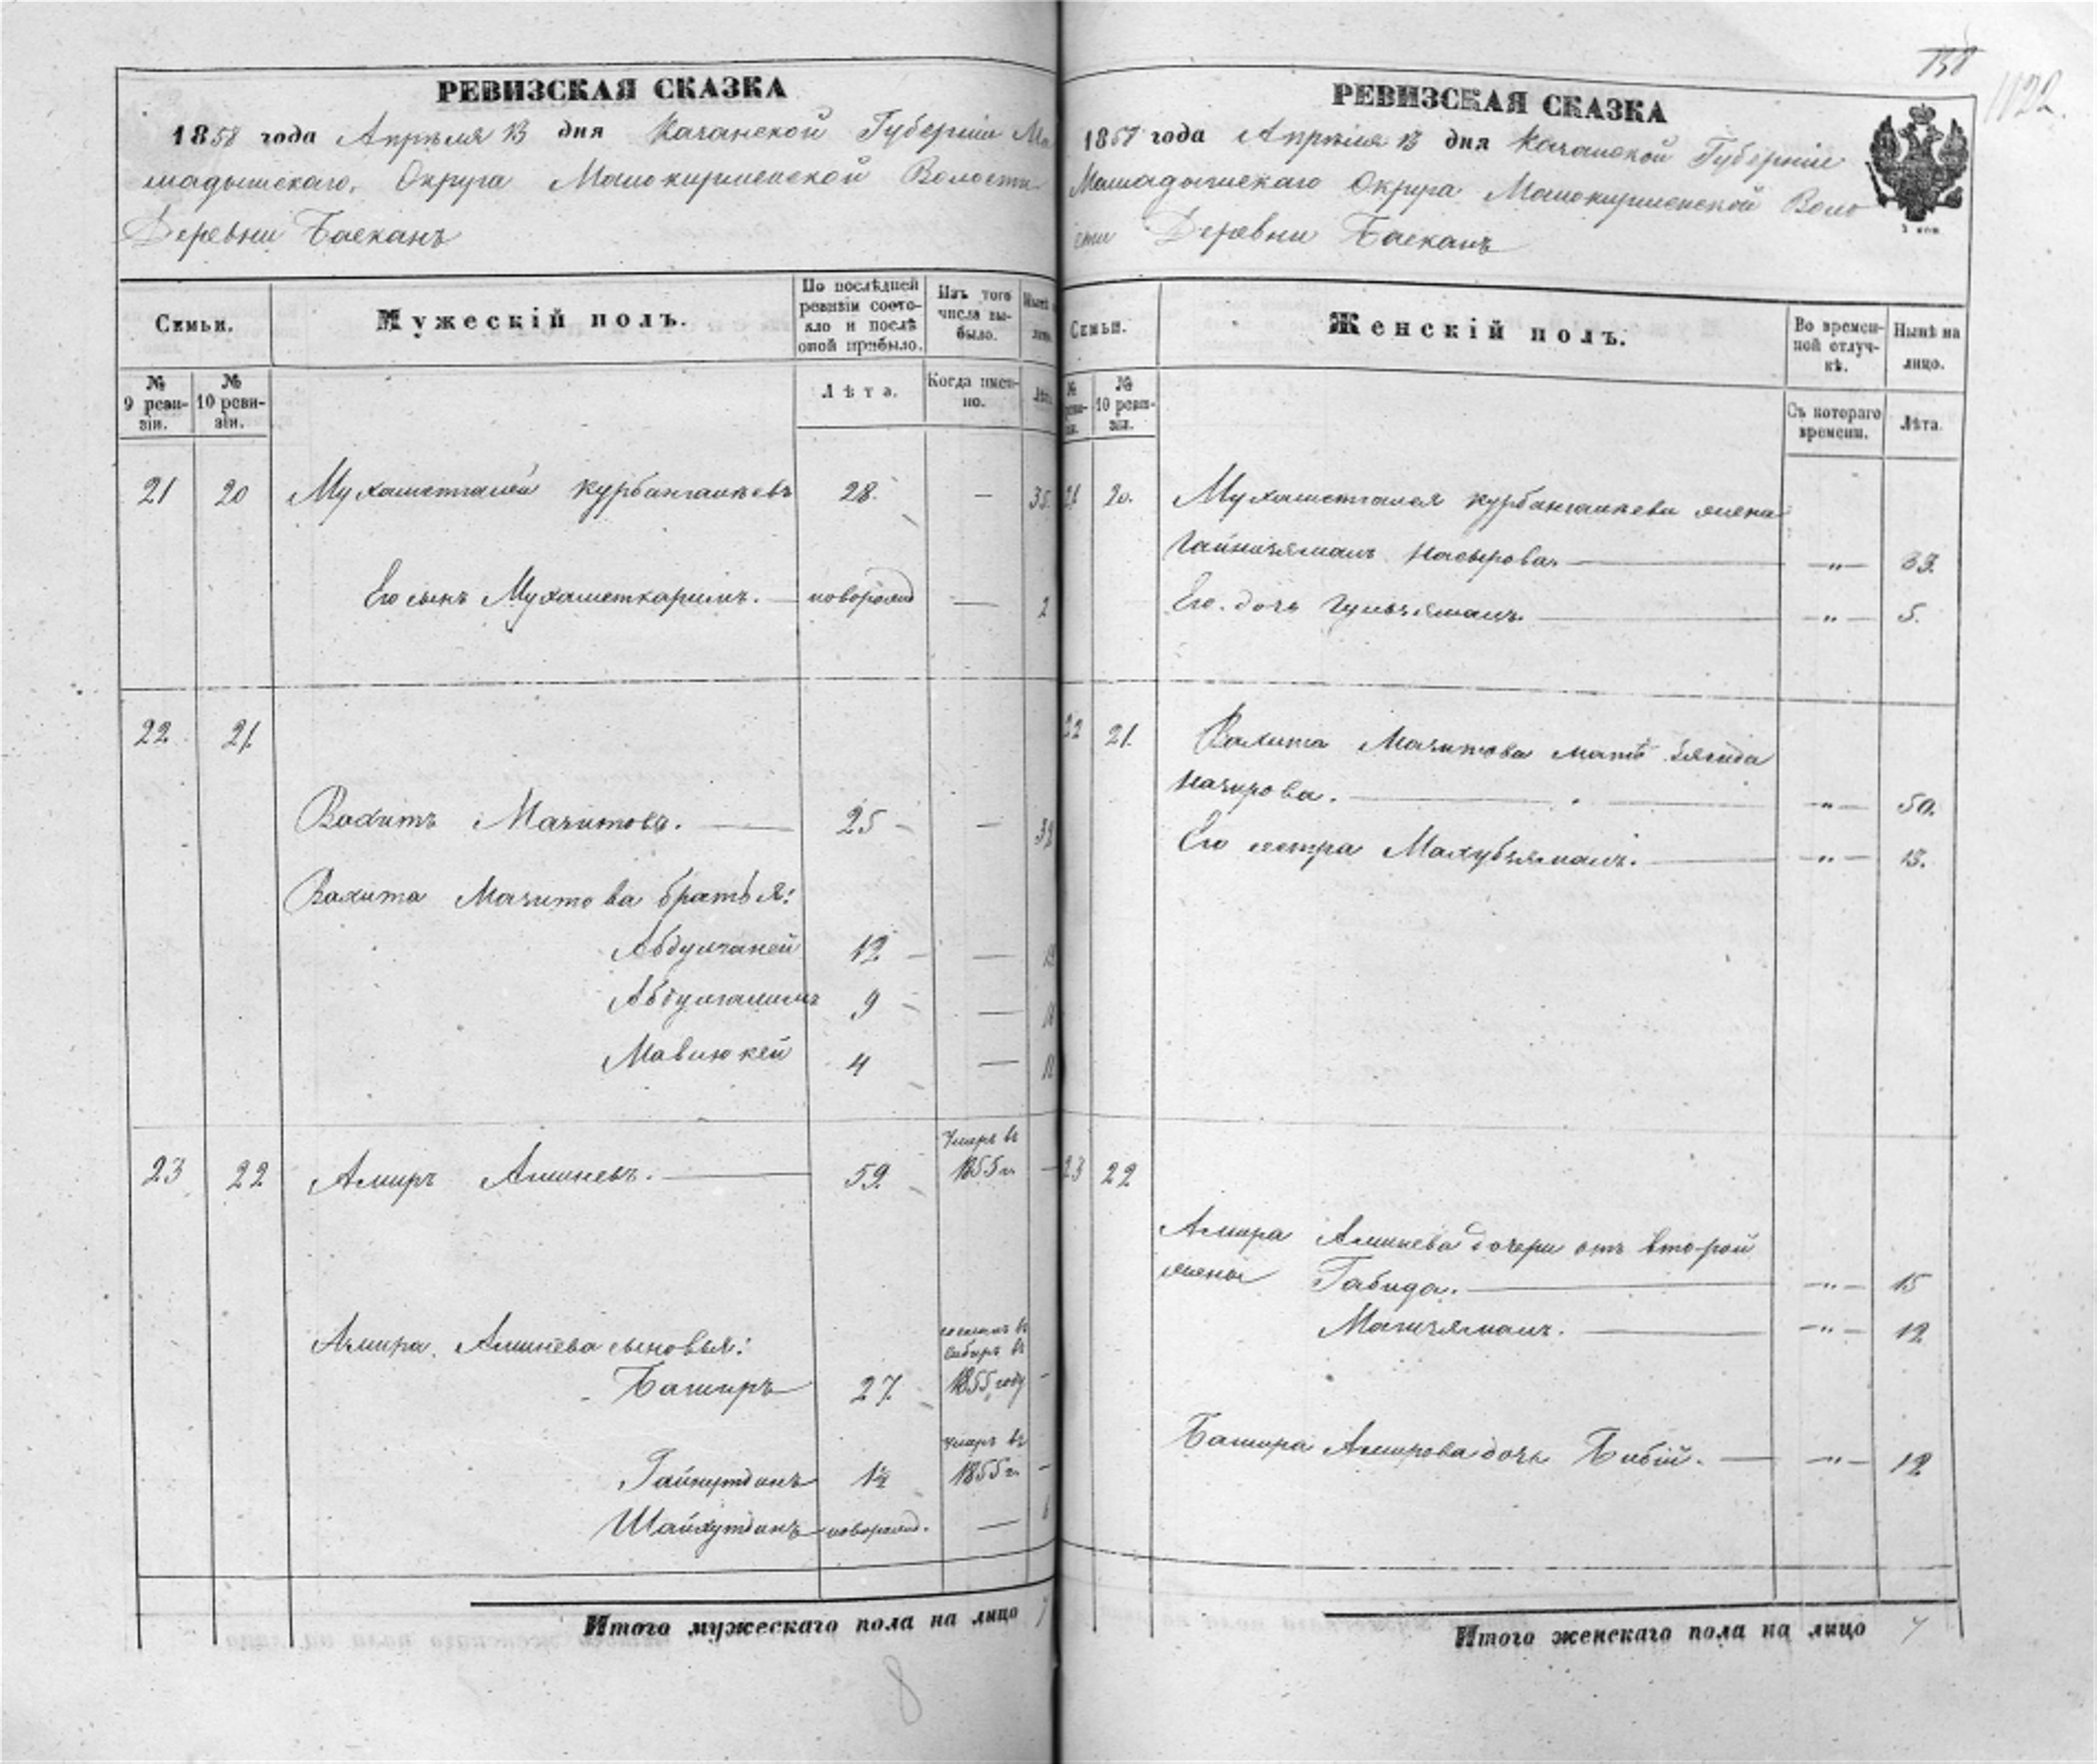 РЕВИЗСКАЯ СКАЗКА
1858 года Апрѣля 13 дня Казанской Губерніи Ма
мадышскаго Округа Малокирменской Волости
Деревни Баеканъ
Семьи.
Мужескій полъ.
По послѣдней ревизіи состо-
яло и послѣ
оной прибыло.
Изъ того
числа вы-
было.
№
9 реви-
зіи.
№
10 реви-
зіи.
Лѣта.
Когда имен-
но.
21 20 Мухаметгалей Курбангалѣевъ 28. — 35
Его сынъ Мухаметкаримъ. — новорожд — 2
22 21
Вахитъ Мазитовъ. — 25 — 32
Вахита Мазитова братья:
Абдулганей 12 — 19
Абдулгалимъ 9 —
4 — 11
23 22 Амиръ Аминевъ. — 59 Умеръ въ
1855 г. —
Амира Аминева сыновья:
Баширъ 27 сосланъ въ
Сибирь въ
1855 году —
Гайнутдинъ 1½ Умеръ въ
1855 г. —
Шайхутдинъ новорожд. — 6
Итого мужескаго пола на лицо 7
8
138
1122.
РЕВИЗСКАЯ СКАЗКА
1858 года Апрѣля 13 дня Казанской Губерніи
Мамадышскаго Округа Малокирменской Воло
сти Деревни Баеканъ
Семьи.
Женскій полъ.
Во времен-
ной отлуч-
кѣ.
Нынѣ на
лицо.
№
10 реви-
зіи.
Съ котораго
времени.
Лѣта.
21 20. Мухаметгалея Курбангалѣева жена
Гайнизямалъ Насырова. — „ —
Его дочь Гульзямалъ. — „ — 5.
22 21. Вахита Мазитова мать Зягида
Назирова. — „ — 50.
Его сестра Махубзямалъ. — „ — 13.
23 22
Амира Аминева дочери отъ второй
жены Габида. — „ — 15
Магизямалъ. — „ — 12
Башира Амирова дочь Бибій. — „ — 12
Итого женскаго пола на лицо 7